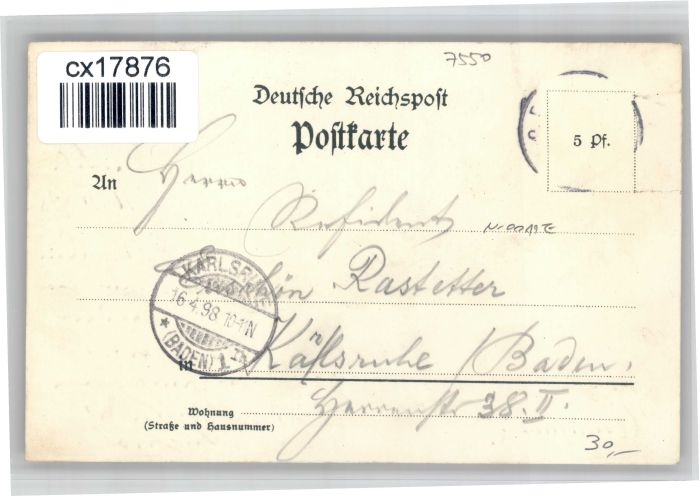 cx17876
7550
Deutsche Reichspost
Postkarte
5 Pf.
An Herrn
Residenz
Rastetter
KARLSRUHE
16.4.98 10-11N
(BADEN) 1
in Karlsruhe / Baden.
Wohnung
(Straße und Hausnummer)
Herrenstr 38. II.
30,-